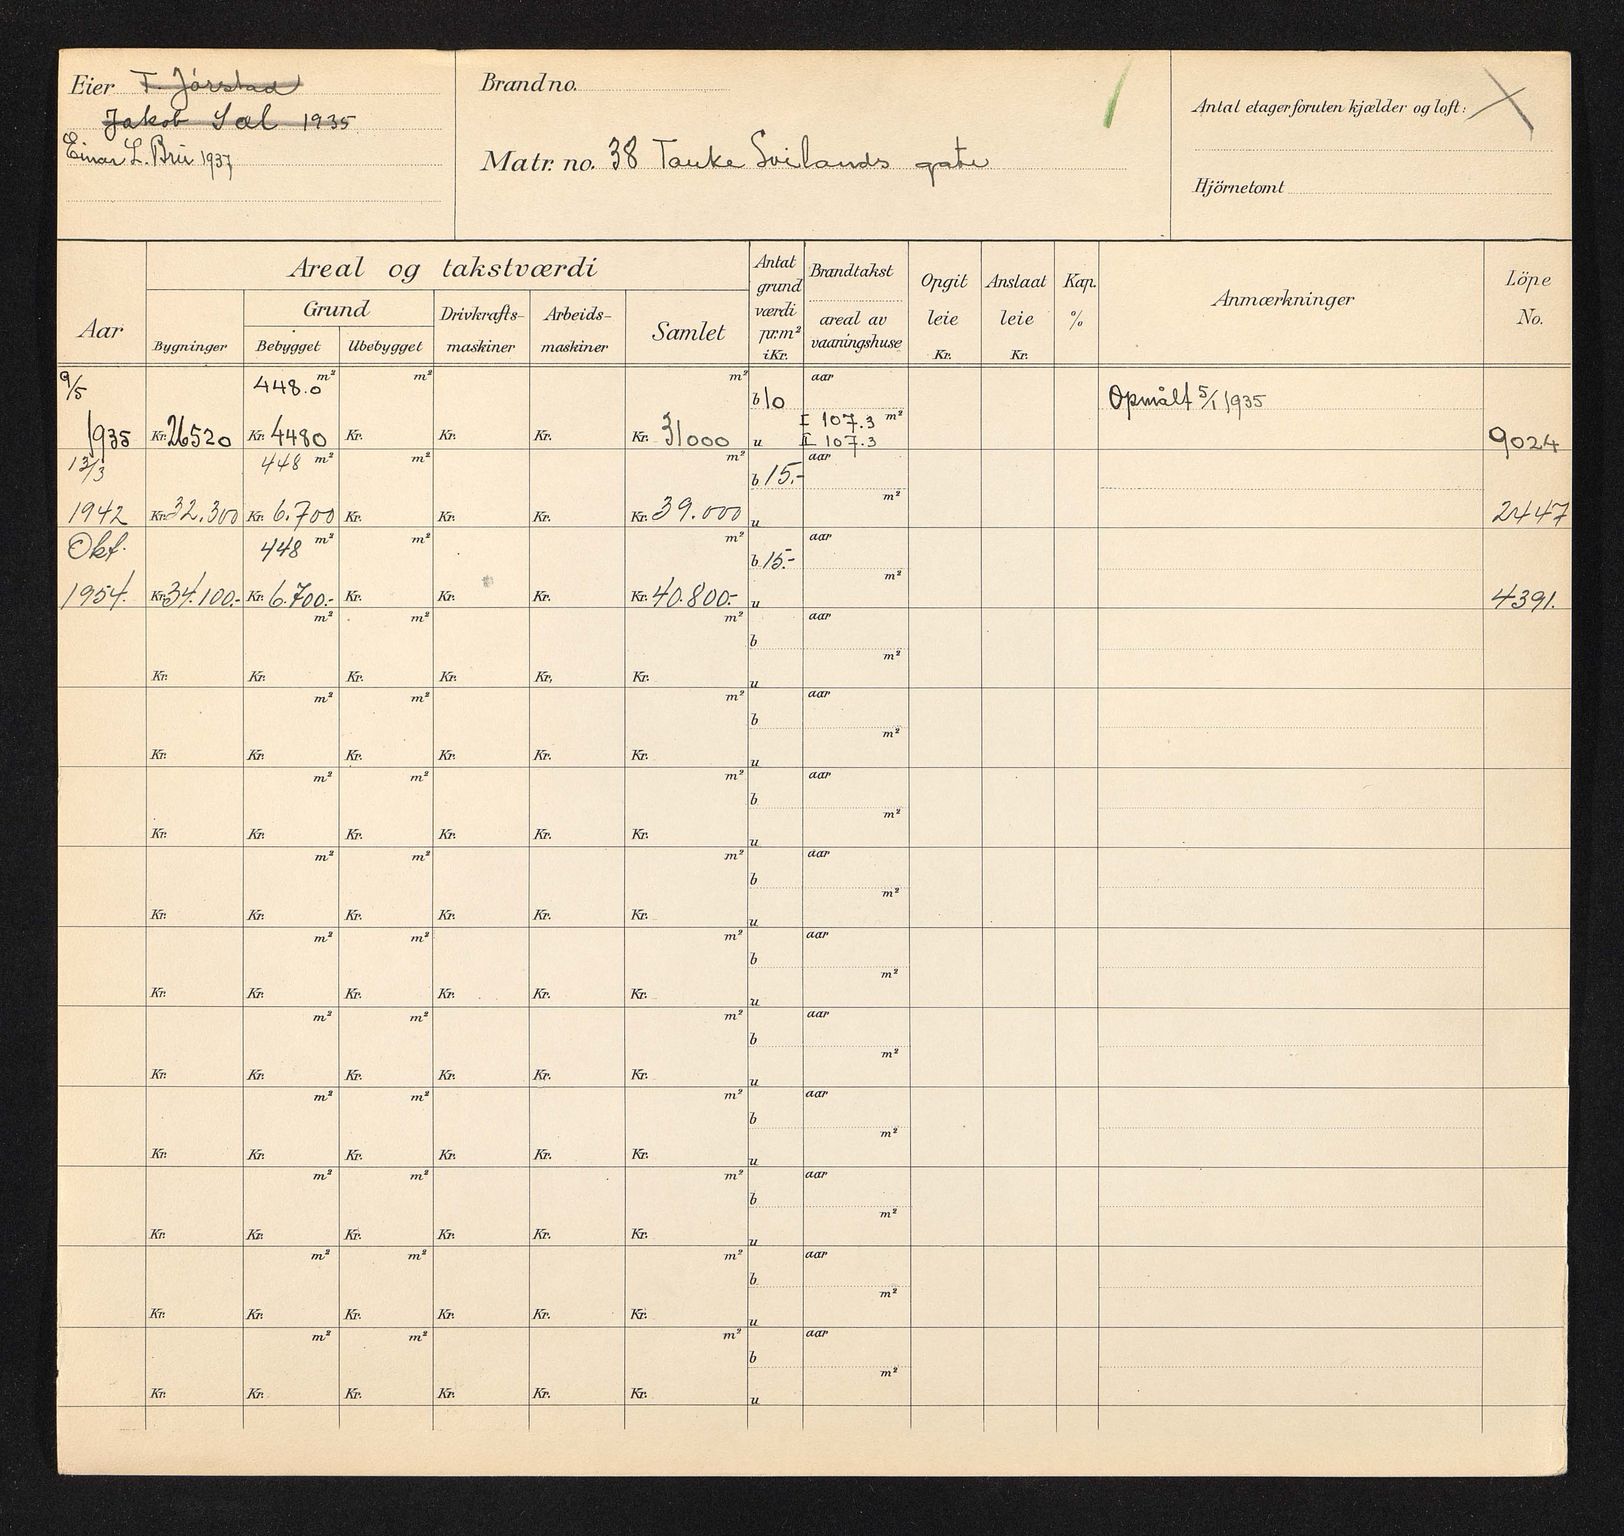 Eier T. Jórstad
Jakob Sæl 1935
Einar L. Brü 1937
Brandno.
Matr. no. 38 Tauke Svilands gate
Antal etager foruten kjælder og loft:
Hjörnetomt
Aar
Areal og takstværdi
Grund
Bygninger
Bebygget
Ubebygget
Drivkrafts-
maskiner
Arbeids-
maskiner
Samlet
Antal
grund
værdi
pr.m²
i Kr.
Brandtakst
areal av
vaaningshuse
Opgit
leie
Kr.
Anslaat
leie
Kr.
Kap.
%
Anmærkninger
Löpe
No.
9/5 448.0 m² m² m² b 10 aar Opmålt 5/1 1935
I 107.3 m²
1935 Kr. 26520 Kr. 4480 Kr. Kr. Kr. Kr. 31000 u II 107.3 9024
13/3 448 m² m² m² b 15.- aar
m²
1942 Kr. 32.300 Kr. 6.700 Kr. Kr. Kr. Kr. 39.000 u 2447
Okt. 448 m² m² m² b 15.- aar
m²
1954. Kr. 34.100.- Kr. 6.700.- Kr. Kr. Kr. Kr. 40.800.- u 4391.
m² m² m² b aar
m²
Kr. Kr. Kr. Kr. Kr. Kr. u
m² m² m² b aar
m²
Kr. Kr. Kr. Kr. Kr. Kr. u
m² m² m² b aar
m²
Kr. Kr. Kr. Kr. Kr. Kr. u
m² m² m² b aar
m²
Kr. Kr. Kr. Kr. Kr. Kr. u
m² m² m² b aar
m²
Kr. Kr. Kr. Kr. Kr. Kr. u
m² m² m² b aar
m²
Kr. Kr. Kr. Kr. Kr. Kr. u
m² m² m² b aar
m²
Kr. Kr. Kr. Kr. Kr. Kr. u
m² m² m² b aar
m²
Kr. Kr. Kr. Kr. Kr. Kr. u
m² m² m² b aar
m²
Kr. Kr. Kr. Kr. Kr. Kr. u
m² m² m² b aar
m²
Kr. Kr. Kr. Kr. Kr. Kr. u